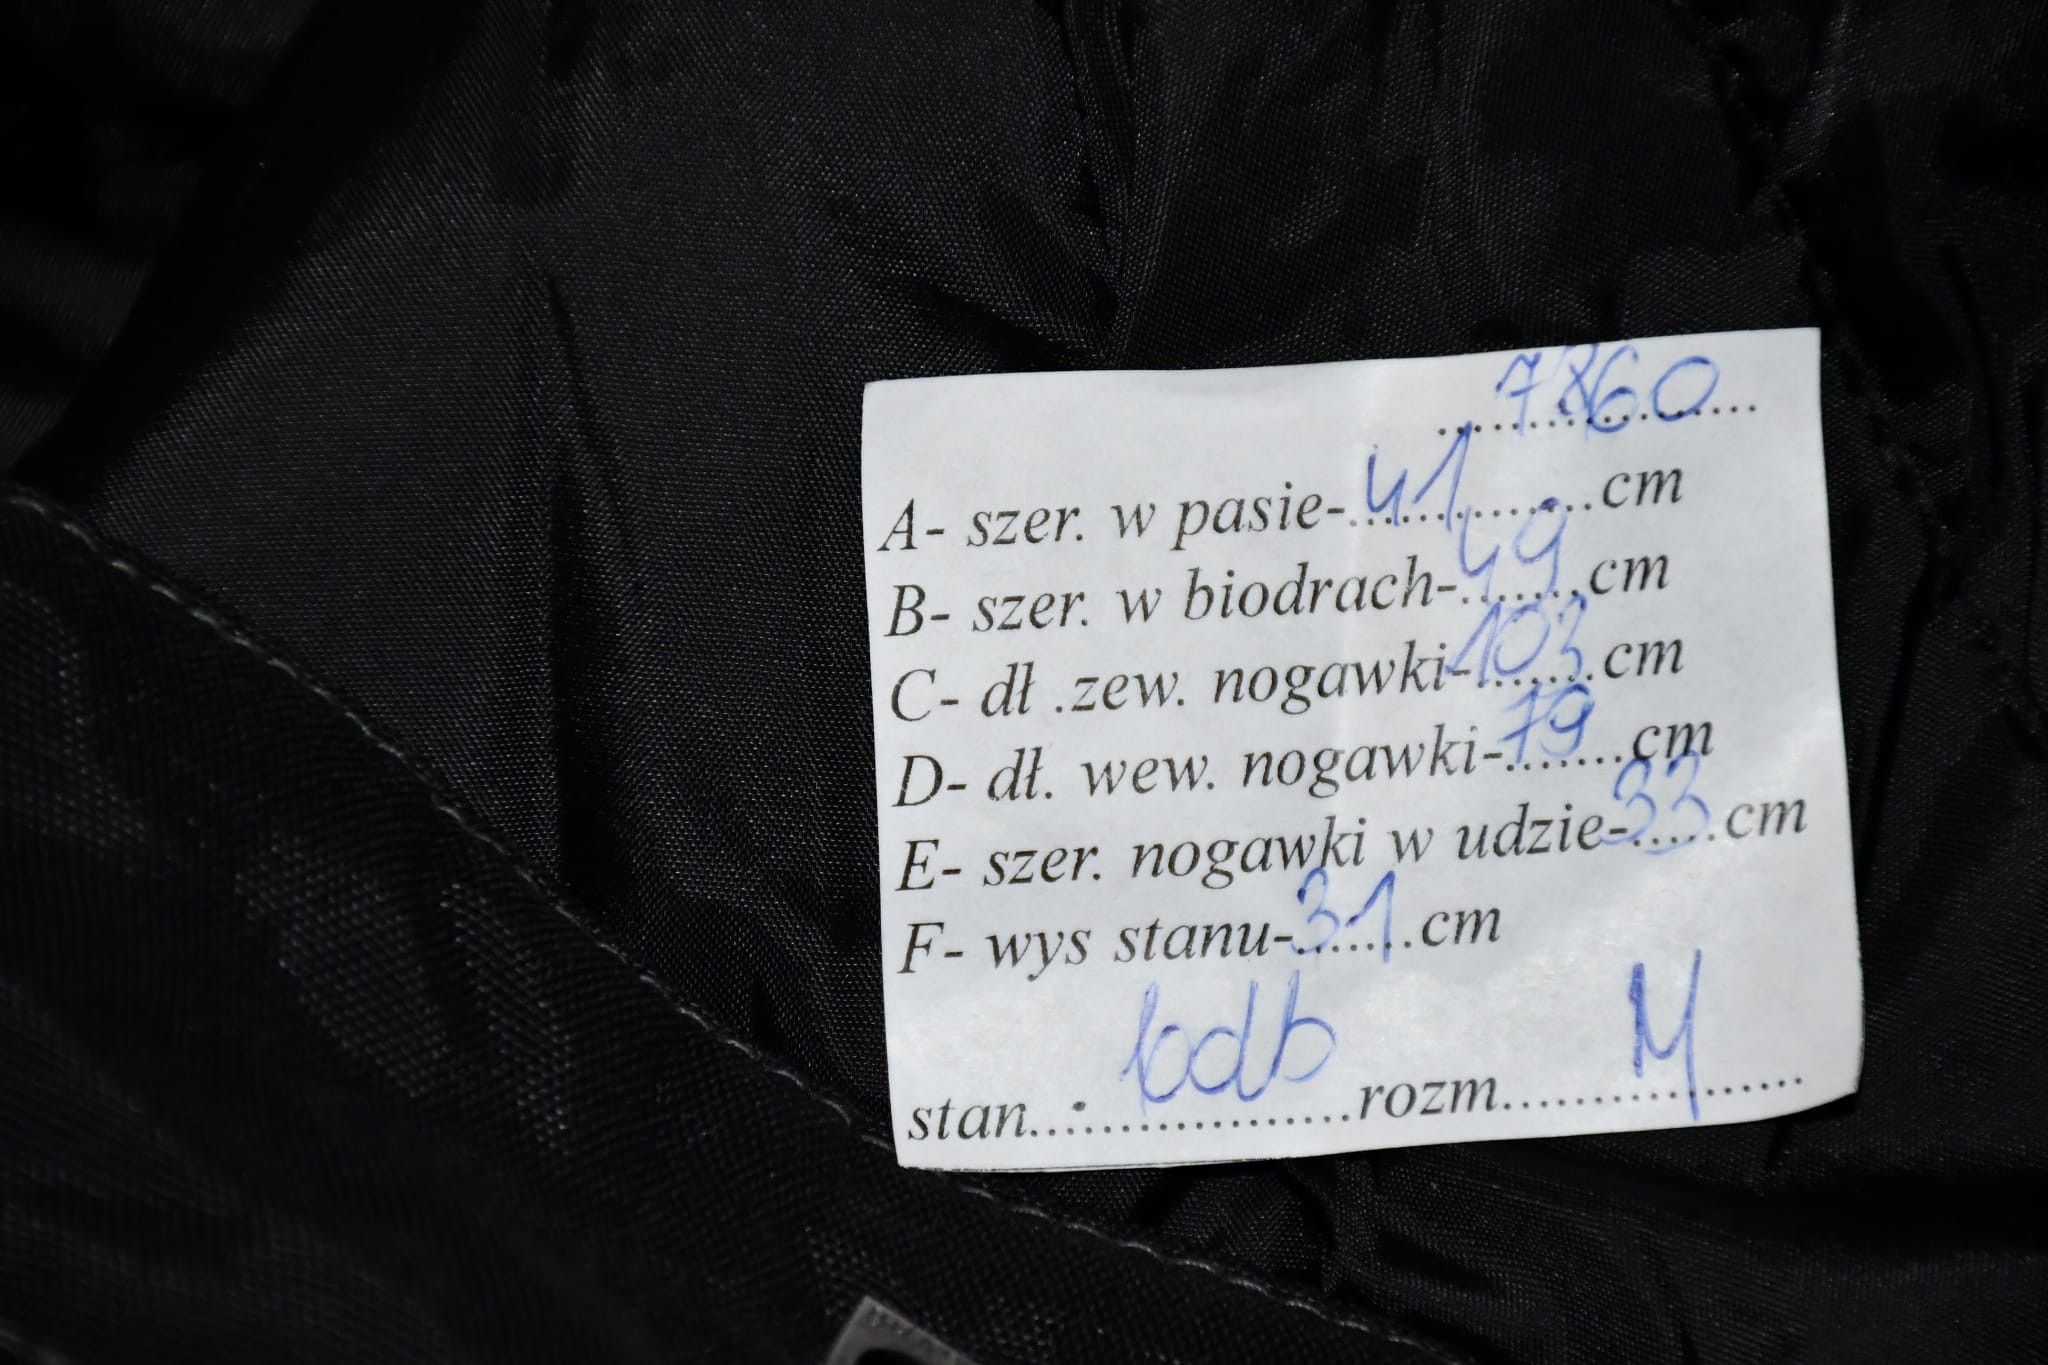 7860
A- szer. w pasie-41........cm
B- szer. w biodrach-49.cm
C- dł .zew. nogawki-103.cm
D- dł. wew. nogawki-79....cm
E- szer. nogawki w udzie-33.cm
F- wys stanu-31.cm
stan..:bdb.........rozm....M......